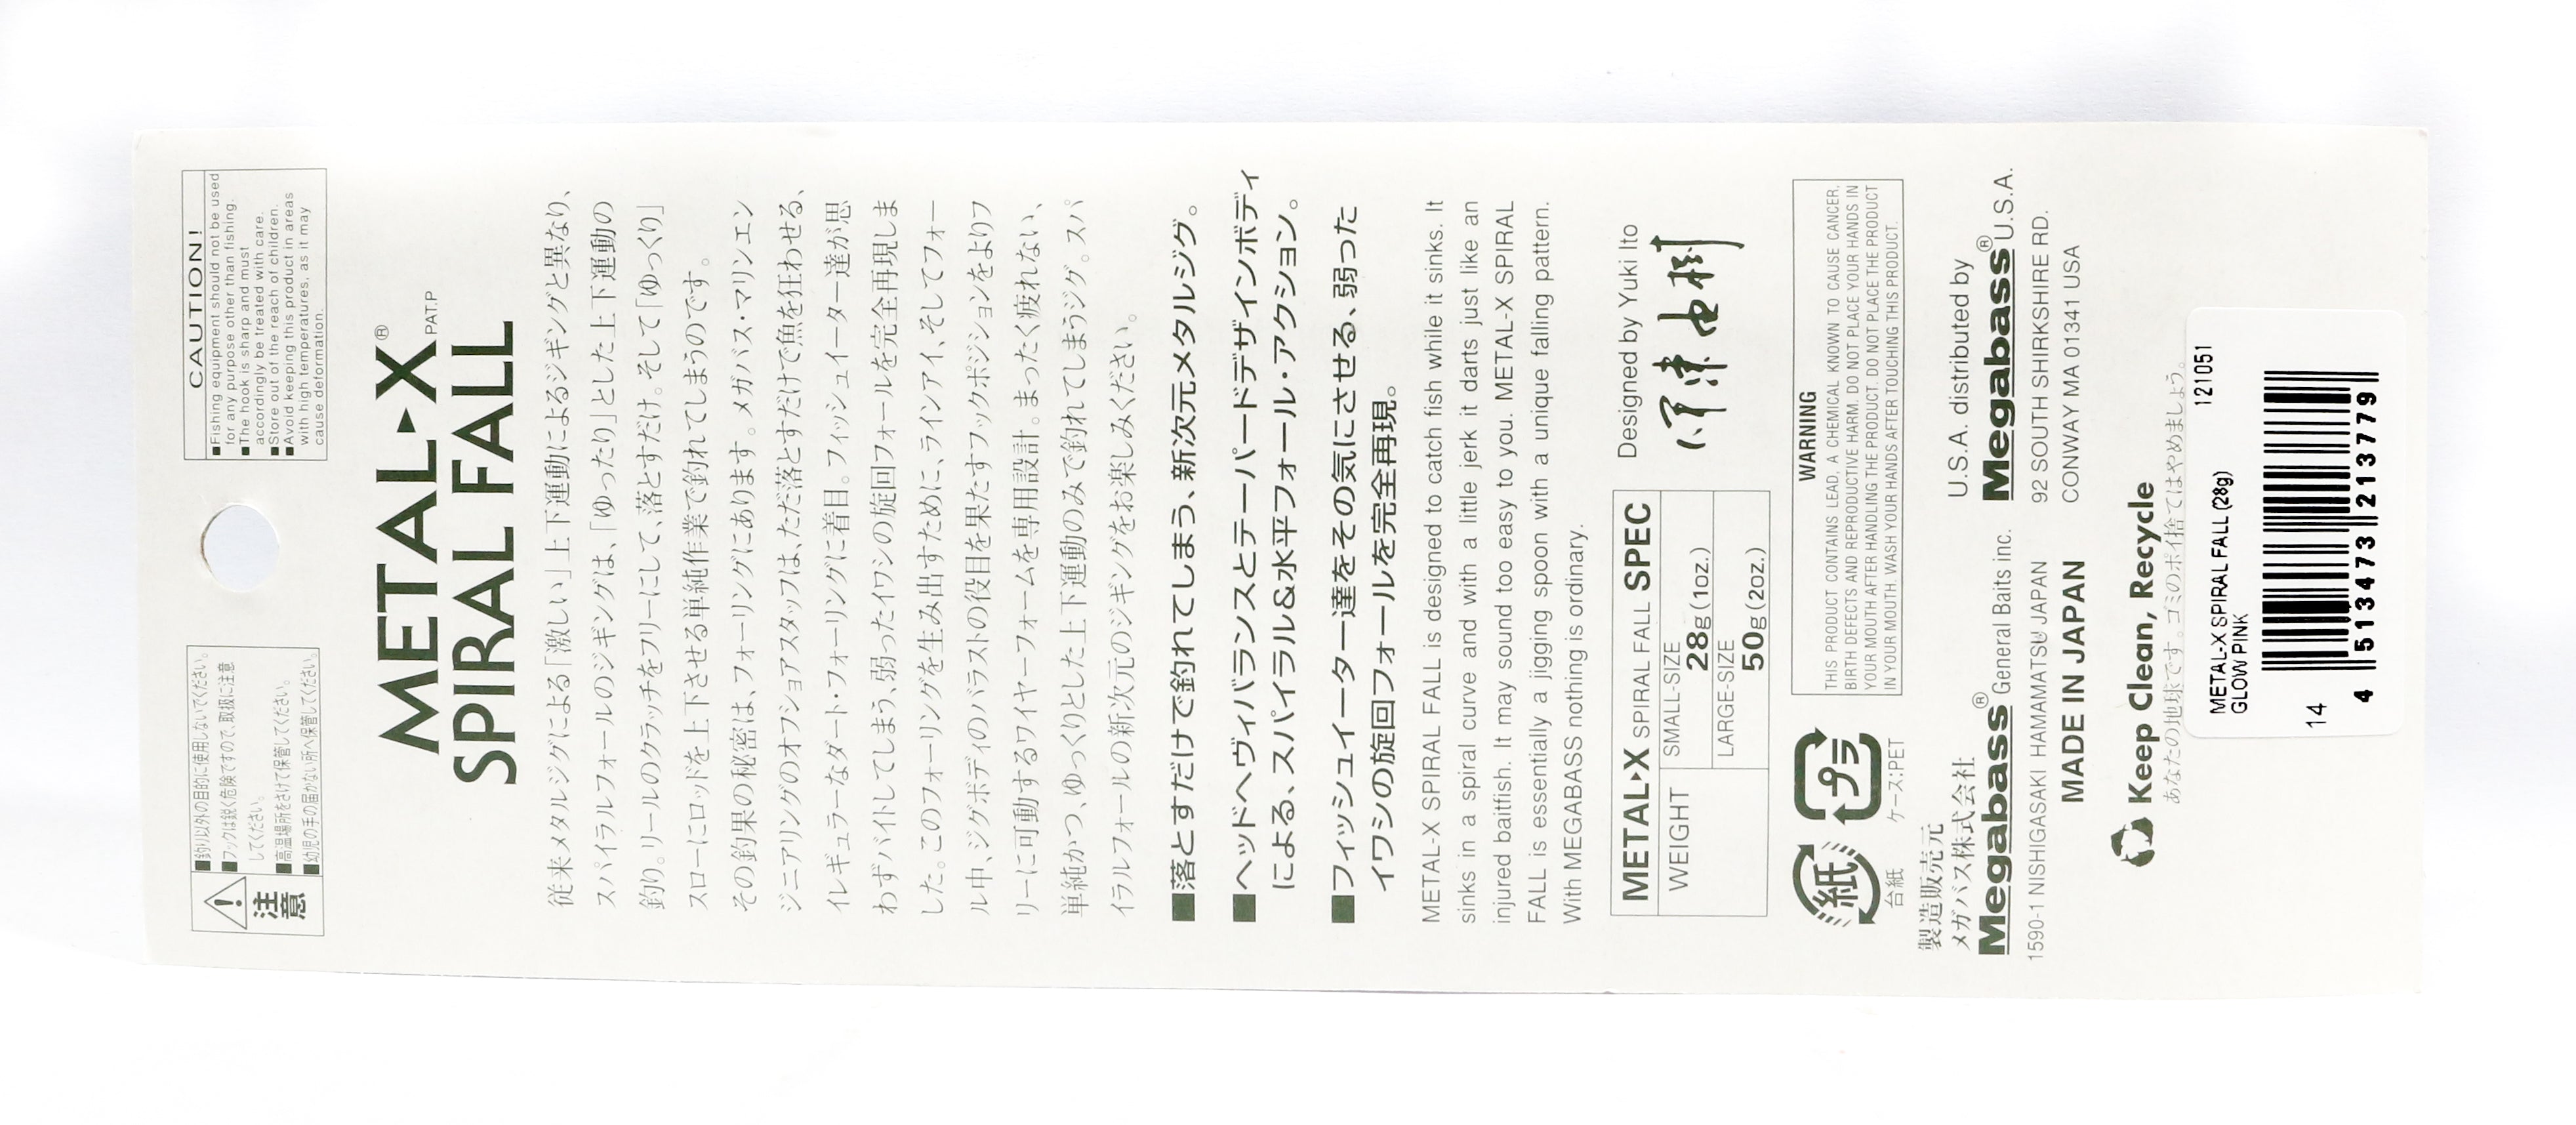 注意
■釣り以外の目的に使用しないでください。
■フックは鋭く危険ですので、取扱に注意
してください。
■高温場所をさけて保管してください。
■幼児の手の届かない所へ保管してください。
CAUTION!
■Fishing equipment should not be used
for any purpose other than fishing.
■The hook is sharp and must
accordingly be treated with care.
■Store out of the reach of children.
■Avoid keeping this product in areas
with high temperatures, as it may
cause deformation.
METAL▸X®
PAT.P
SPIRAL FALL
従来メタルジグによる「激しい」上下運動によるジギングと異なり、
スパイラルフォールのジギングは、「ゆったり」とした上下運動の
釣り。リールのクラッチをフリーにして、落とすだけ。そして「ゆっくり」
スローにロッドを上下させる単純作業で釣れてしまうのです。
その釣果の秘密は、フォーリングにあります。メガバス・マリンエン
ジニアリングのオフショアスタッフは、ただ落とすだけで魚を狂わせる、
イレギュラーなダート・フォーリングに着目。フィッシュイーター達が思
わずバイトしてしまう、弱ったイワシの旋回フォールを完全再現しま
した。このフォーリングを生み出すために、ラインアイ、そしてフォー
ル中、ジグボディのバラストの役目を果たすフックポジションをよりフ
リーに可動するワイヤーフォームを専用設計。まったく疲れない、
単純かつ、ゆっくりとした上下運動のみで釣れてしまうジグ。スパ
イラルフォールの新次元のジギングをお楽しみください。
■落とすだけで釣れてしまう、新次元メタルジグ。
■ヘッドヘヴィバランスとテーパードデザインボディ
による、スパイラル&水平フォール・アクション。
■フィッシュイーター達をその気にさせる、弱った
イワシの旋回フォールを完全再現。
METAL-X SPIRAL FALL is designed to catch fish while it sinks. It
sinks in a spiral curve and with a little jerk it darts just like an
injured baitfish. It may sound too easy to you. METAL-X SPIRAL
FALL is essentially a jigging spoon with a unique falling pattern.
With MEGABASS nothing is ordinary.
METAL▸X SPIRAL FALL SPEC
WEIGHT
SMALL-SIZE
28g(1oz.)
LARGE-SIZE
50g(2oz.)
Designed by Yuki Ito
伊東由樹
紙
台紙
プラ
ケース:PET
WARNING
THIS PRODUCT CONTAINS LEAD, A CHEMICAL KNOWN TO CAUSE CANCER,
BIRTH DEFECTS AND REPRODUCTIVE HARM. DO NOT PLACE YOUR HANDS IN
YOUR MOUTH AFTER HANDLING THE PRODUCT. DO NOT PLACE THE PRODUCT
IN YOUR MOUTH. WASH YOUR HANDS AFTER TOUCHING THIS PRODUCT.
製造販売元
メガバス株式会社
Megabass® General Baits inc.
1590-1 NISHIGASAKI HAMAMATSU JAPAN
MADE IN JAPAN
U.S.A. distributed by
Megabass® U.S.A.
92 SOUTH SHIRKSHIRE RD.
CONWAY MA 01341 USA
Keep Clean, Recycle
あなたの地球です。ゴミのポイ捨てはやめましょう。
121051
METAL-X SPIRAL FALL (28g)
GLOW PINK
14
4 513473 213779